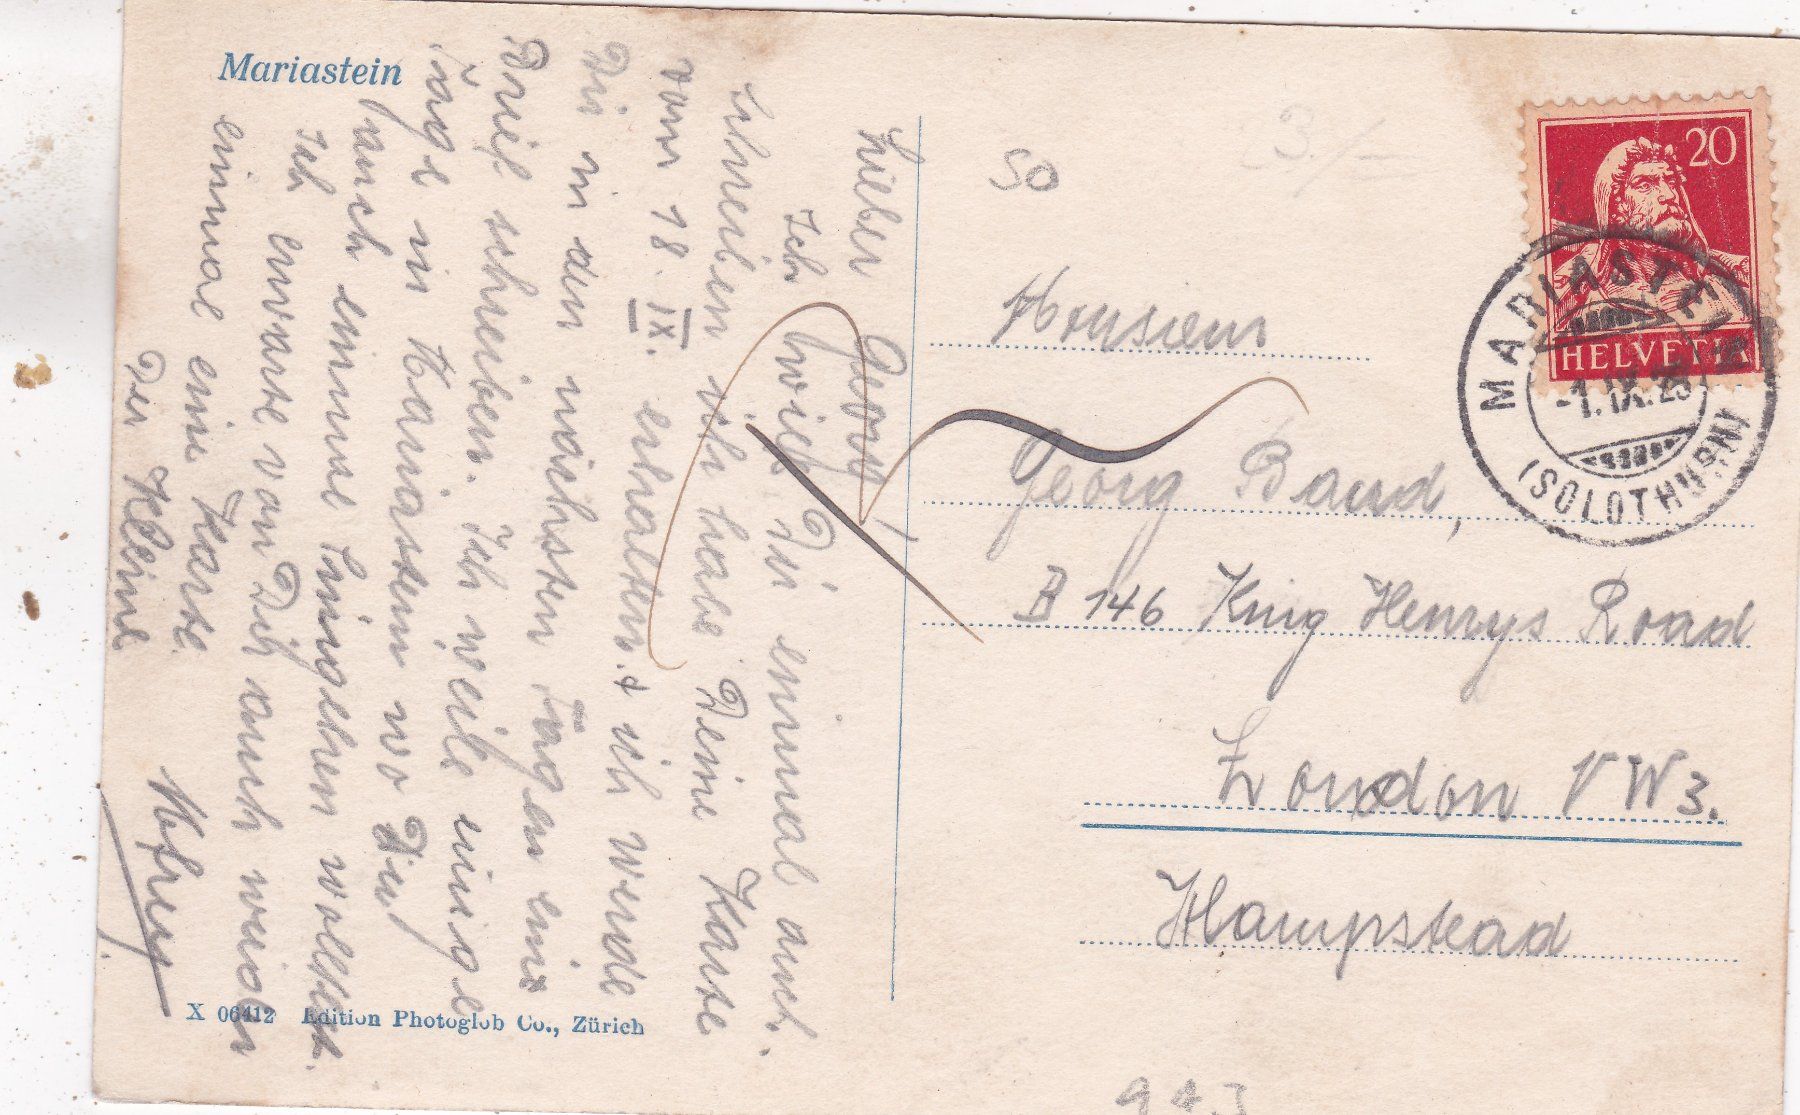 Mariastein
Lieber Georg
Ich will Dir einmal auch.
schreiben ich habe Deine Karte
vom 18. IX. erhalten. & ich werde
Dir in den nächsten Tagen einz
Brief schreiben. Ich weile einige
Tage in Mariastein wo Du
auch einmal hingehen wolltest.
Ich erwarte von Dir auch wieder
einmal eine Karte.
Der Kleine
X 06412 Edition Photoglob Co., Zürich
50
3./—
Monsieur
Georg Baud,
B 146 King Henrys Road
London VW3.
Hampstead
20
HELVETIA
MARIASTEIN
-1. IX. 25
(SOLOTHURN)
943